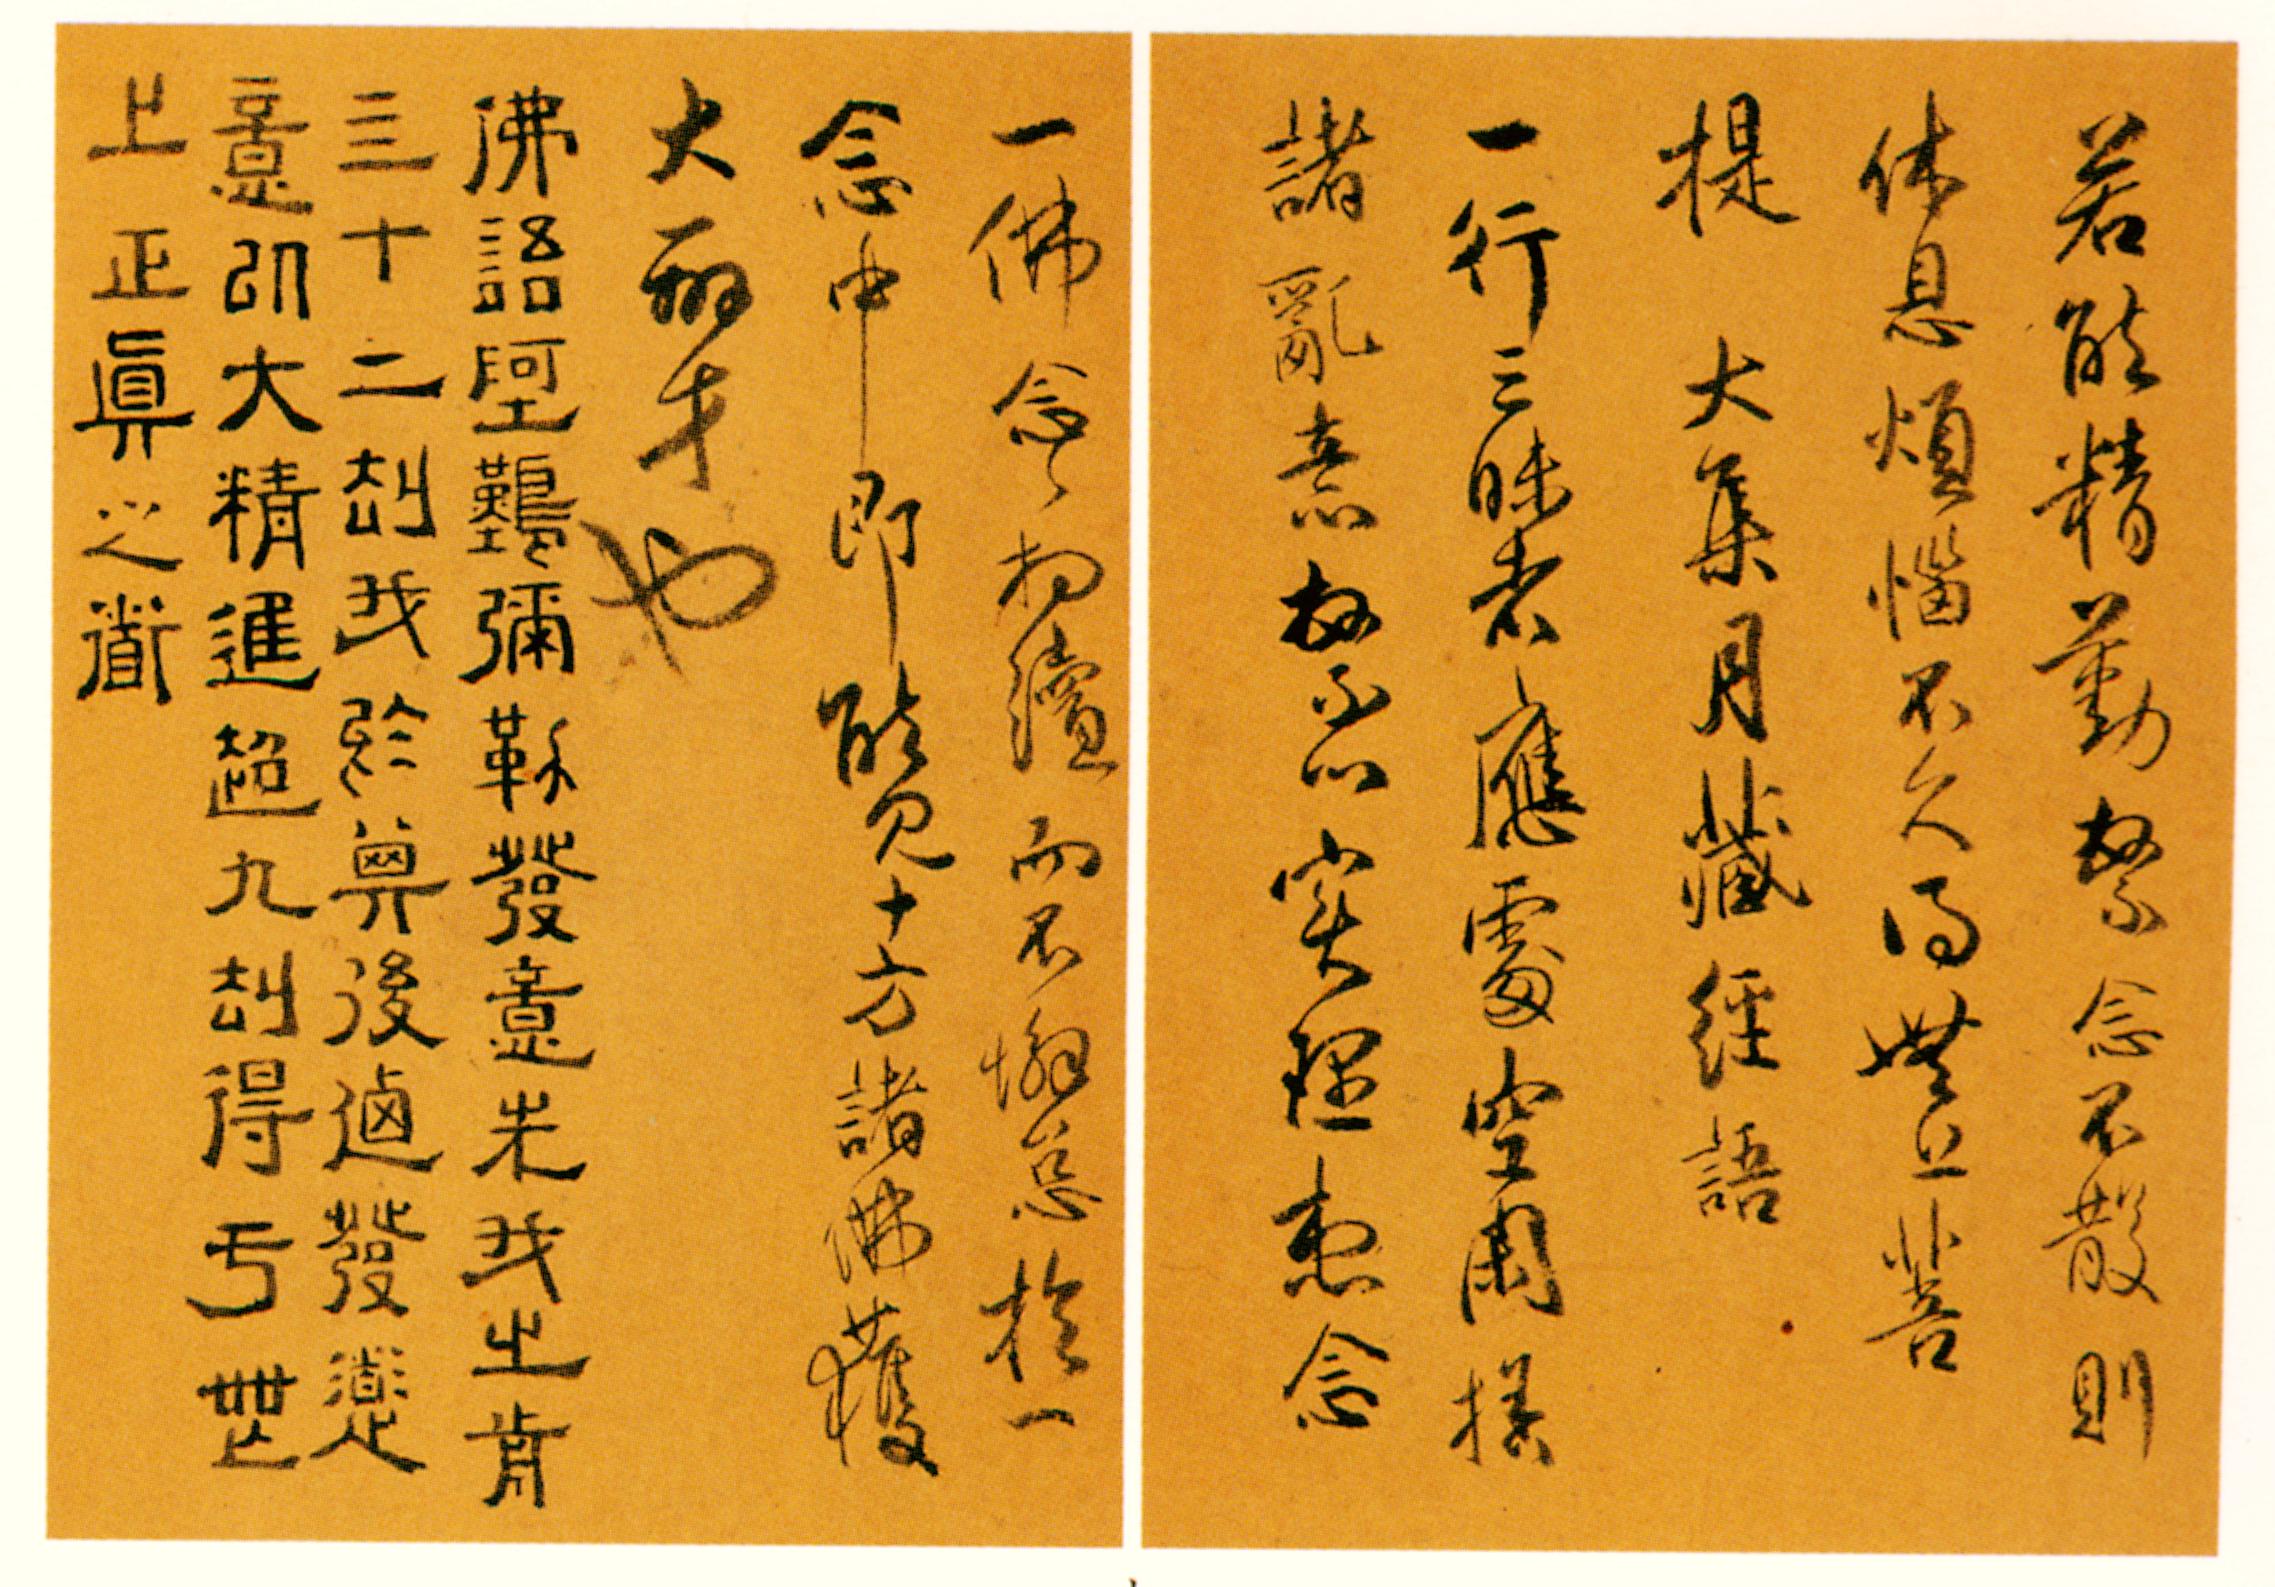 若能精勤繫念不散則
休息煩惱不久得無上菩
提 大集月藏經語
一行三昧者應處空閑捨
諸亂意繫心實理想念
一佛念々相續而不懈怠於一
念中即能見十方諸佛獲
大辯才也
佛語阿難彌勒發意先我之前
亖十二劫我於其後乃發道
意以大精進超九劫得于無
上正真之道